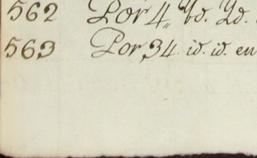 562 Por 4, Yd. Yd.
563 Por 34 id. id. en